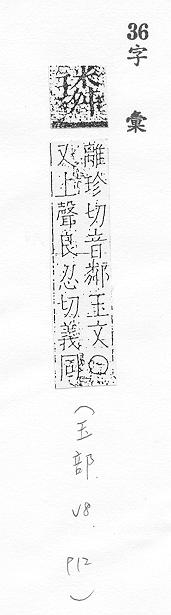 36字彙
璘
離珍切音鄰玉文○
又上聲良忍切義同
(玉部. V8. P12)